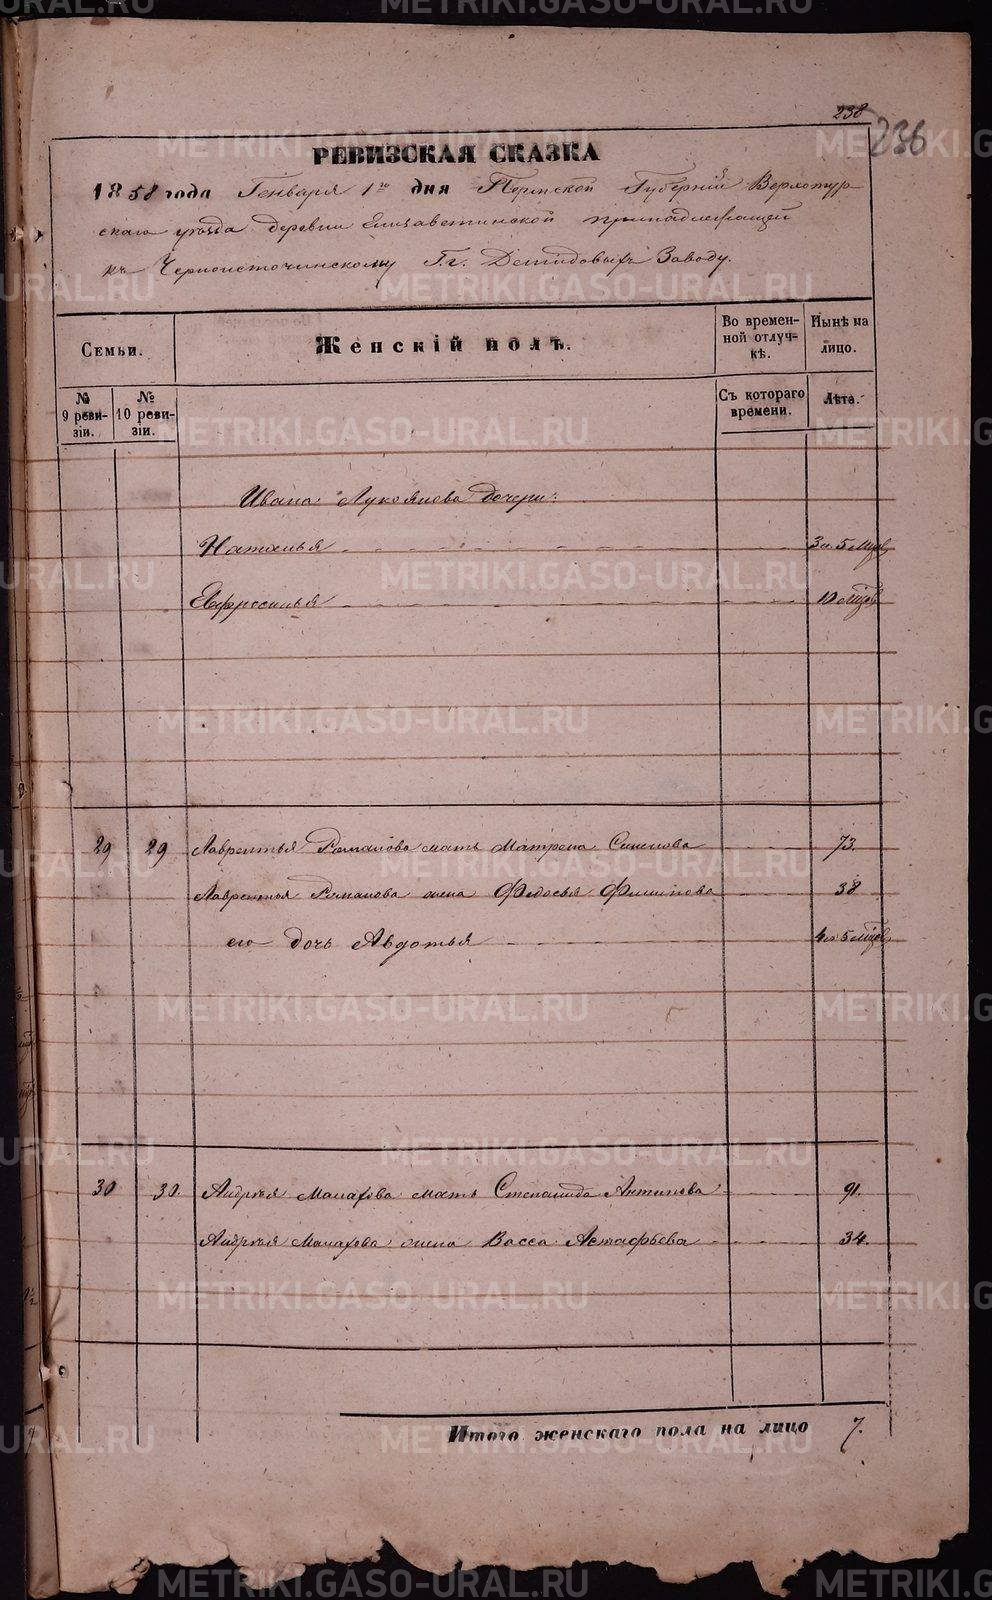 238
236
РЕВИЗСКАЯ СКАЗКА
1858 года Генваря 1го дня Пермской Губерніи Верхотур-
скаго уѣзда деревни Елисаветинской принадлежащей
къ Черноисточинскому Г.г. Демидовыхъ Заводу.
Семьи.
Женскій полъ.
Во времен-
ной отлуч-
кѣ.
Нынѣ на
лицо.
№
9 реви-
зіи.
№
10 реви-
зіи.
Съ котораго
времени.
Лѣта.
Ивана Лукоянова дочери:
Наталья 3 и 5 мцв
Евфросинья 10 мцв
29 29 Лаврентья Романова мать Матрена Семенова 73.
Лаврентья Романова жена Федосья Филипова 38
его дочь Авдотья 4 и 5 мцв
30 30. Андрея Малахова мать Степанида Антипова 91.
Андрея Малахова жена Васса Астафьева 34.
Итого женскаго пола на лицо 7.
METRIKI.GASO-URAL.RU